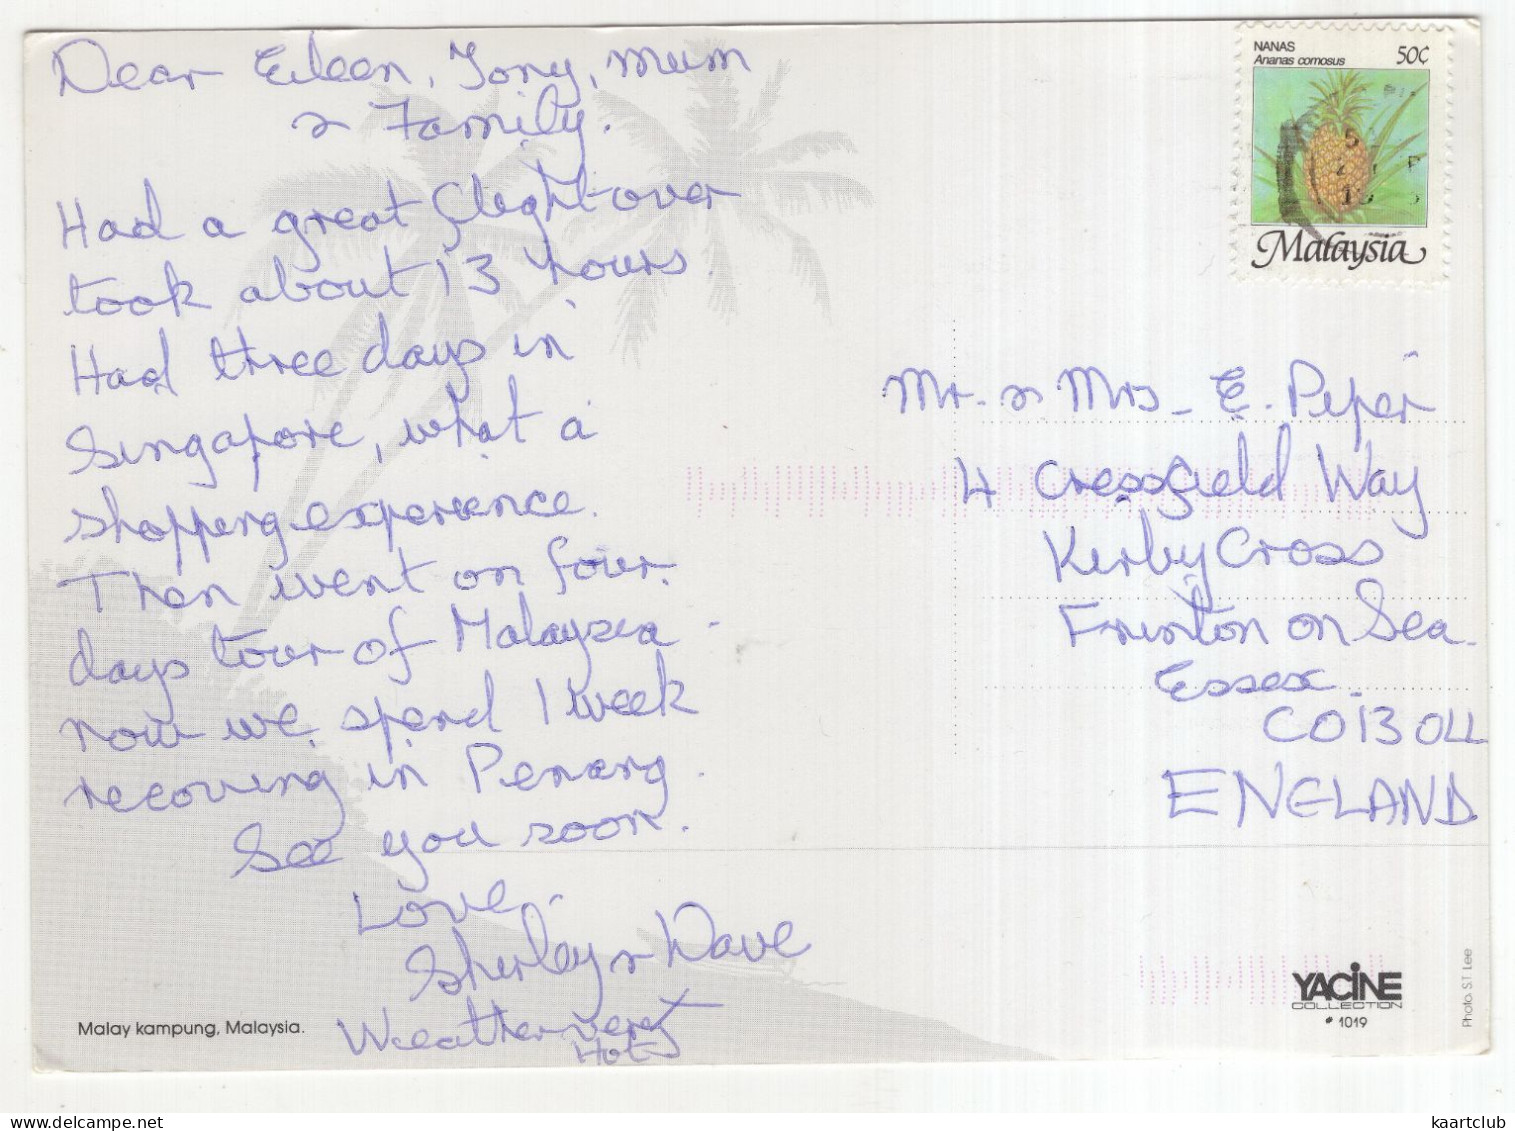 Dear Eileen, Tony, Mum
& Family.
Had a great flight over
took about 13 hours.
Had three days in
Singapore, what a
shopping experience.
Then went on four
days tour of Malaysia
now we spend 1 week
recovering in Penang.
See you soon.
Love,
Shirley & Dave
Weather very
Hot
Malay kampung, Malaysia.
NANAS
Ananas comosus
50¢
Malaysia
Mr. & Mrs. E. Piper
4 Cressfield Way
Kirby Cross
Frinton on Sea.
Essex.
CO13 0LL
ENGLAND
YACINE
COLLECTION
# 1019
Photo. S.T. Lee
kaartclub